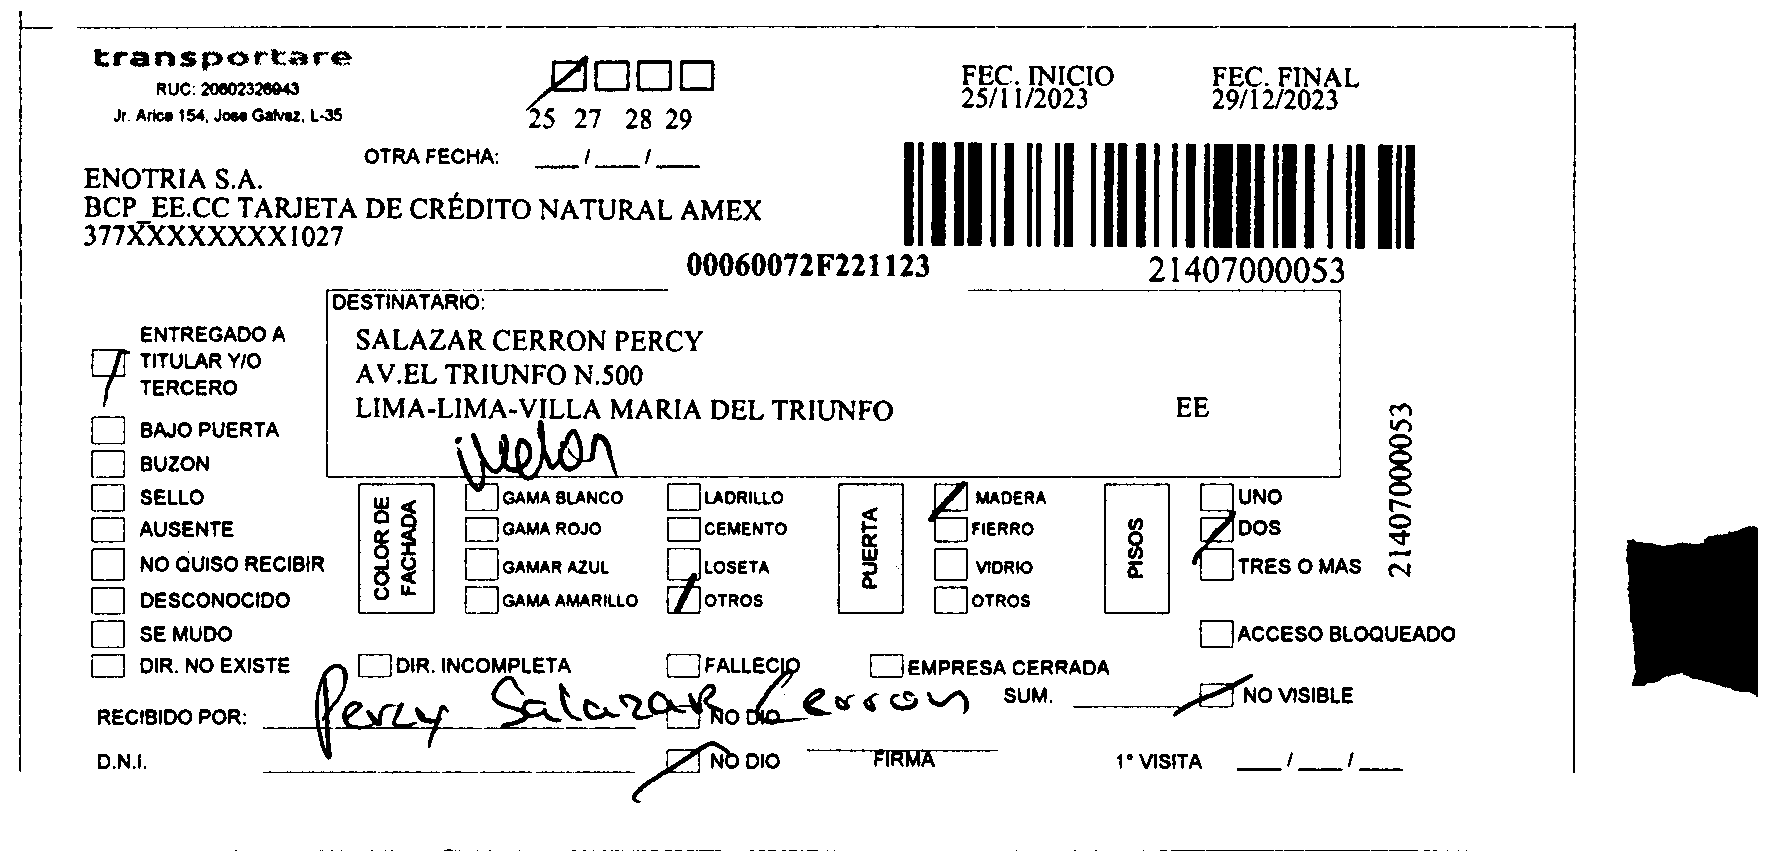 transportare
RUC: 20602326943
Jr. Arica 154, Jose Galvez, L-35
25 27 28 29
OTRA FECHA: ___/___/___
FEC. INICIO
25/11/2023
FEC. FINAL
29/12/2023
ENOTRIA S.A.
BCP_EE.CC TARJETA DE CRÉDITO NATURAL AMEX
377XXXXXXXX1027
00060072F221123
21407000053
DESTINATARIO:
SALAZAR CERRON PERCY
AV.EL TRIUNFO N.500
LIMA-LIMA-VILLA MARIA DEL TRIUNFO EE
21407000053
ENTREGADO A
TITULAR Y/O
TERCERO
BAJO PUERTA
BUZON
SELLO
AUSENTE
NO QUISO RECIBIR
DESCONOCIDO
SE MUDO
DIR. NO EXISTE
COLOR DE
FACHADA
GAMA BLANCO
GAMA ROJO
GAMAR AZUL
GAMA AMARILLO
LADRILLO
CEMENTO
LOSETA
OTROS
PUERTA
MADERA
FIERRO
VIDRIO
OTROS
PISOS
UNO
DOS
TRES O MAS
ACCESO BLOQUEADO
DIR. INCOMPLETA
FALLECIO
EMPRESA CERRADA
SUM. NO VISIBLE
RECIBIDO POR: Percy Salazar Cerron NO DIO
D.N.I. NO DIO
FIRMA
1° VISITA ___/___/___